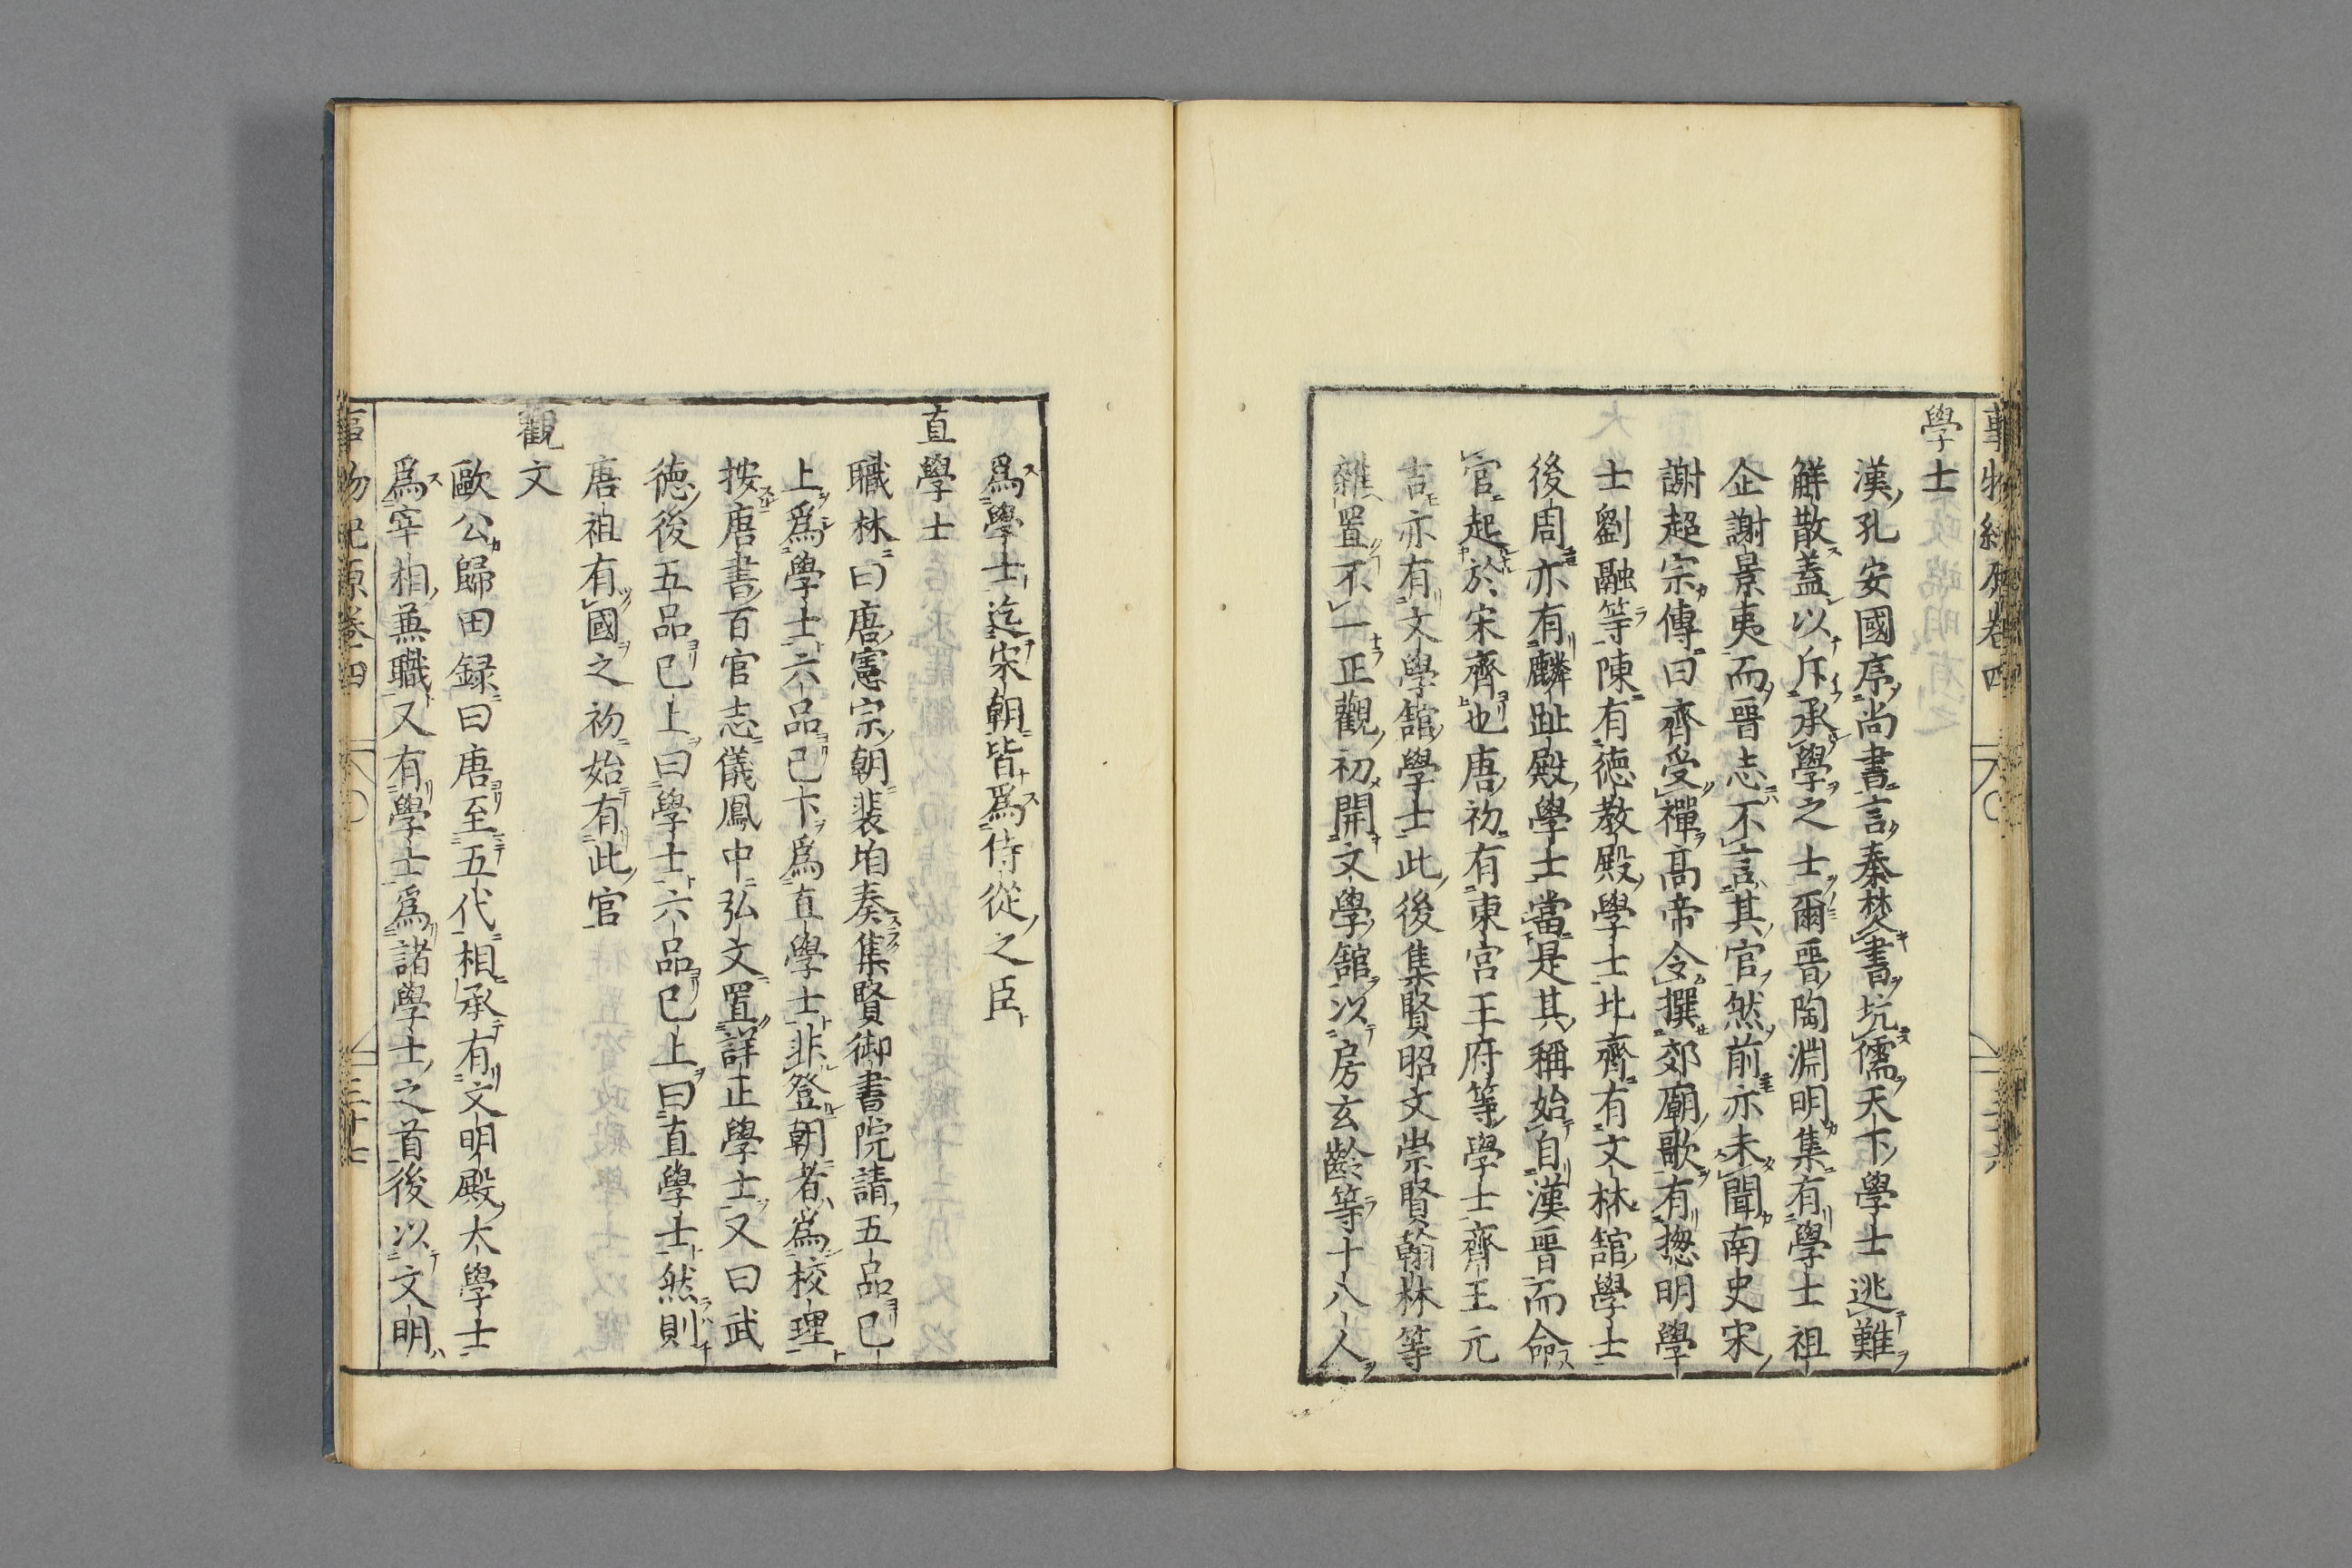 事物紀原卷四
學士
漢孔安國序尚書言秦焚書坑儒天下學士逃難
解散蓋以斥承學之士爾晋陶淵明集有學士祖
企謝景夷而晋志不言其官然前亦未聞南史宋
謝超宗傳曰齊受禪高帝令撰郊廟歌有揔明學
士劉融等陳有德教殿學士北齊有文林舘學士
後周亦有麟趾殿學士當是其稱始自漢晋而命
官起於宋齊也唐初有東宮王府等學士齊王元
吉亦有文學舘學士此後集賢昭文崇賢翰林等
雜置不一正觀初開文學舘以房玄齡等十八人
爲學士迄宋朝皆爲侍從之臣
直學士
職林曰唐憲宗朝裴垍奏集賢御書院請五品已
上爲學士六品已下爲直學士非登朝者爲校理
按唐書百官志儀鳳中弘文置詳正學士又曰武
德後五品已上曰學士六品已上曰直學士然則
唐祖有國之初始有此官
觀文
歐公歸田録曰唐至五代相承有文明殿大學士
爲宰相兼職又有學士爲諸學士之首後以文明
事物紀原卷四 三十七